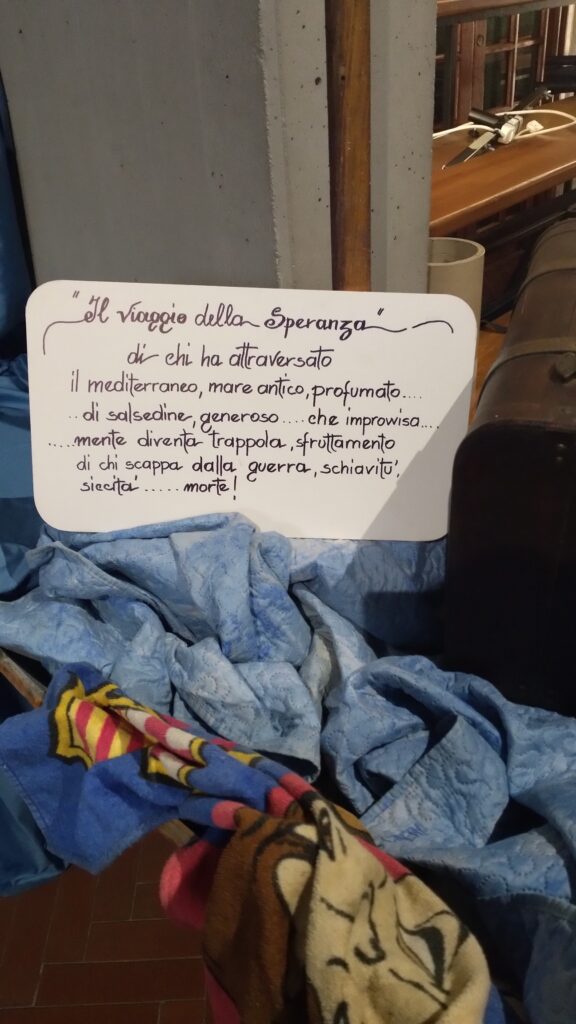 "Il viaggio della Speranza"
di chi ha attraversato
il mediterraneo, mare antico, profumato....
..di salsedine, generoso....che improvvisa....
.....mente diventa trappola, sfruttamento
di chi scappa dalla guerra, schiavitu',
siccita'.....morte!